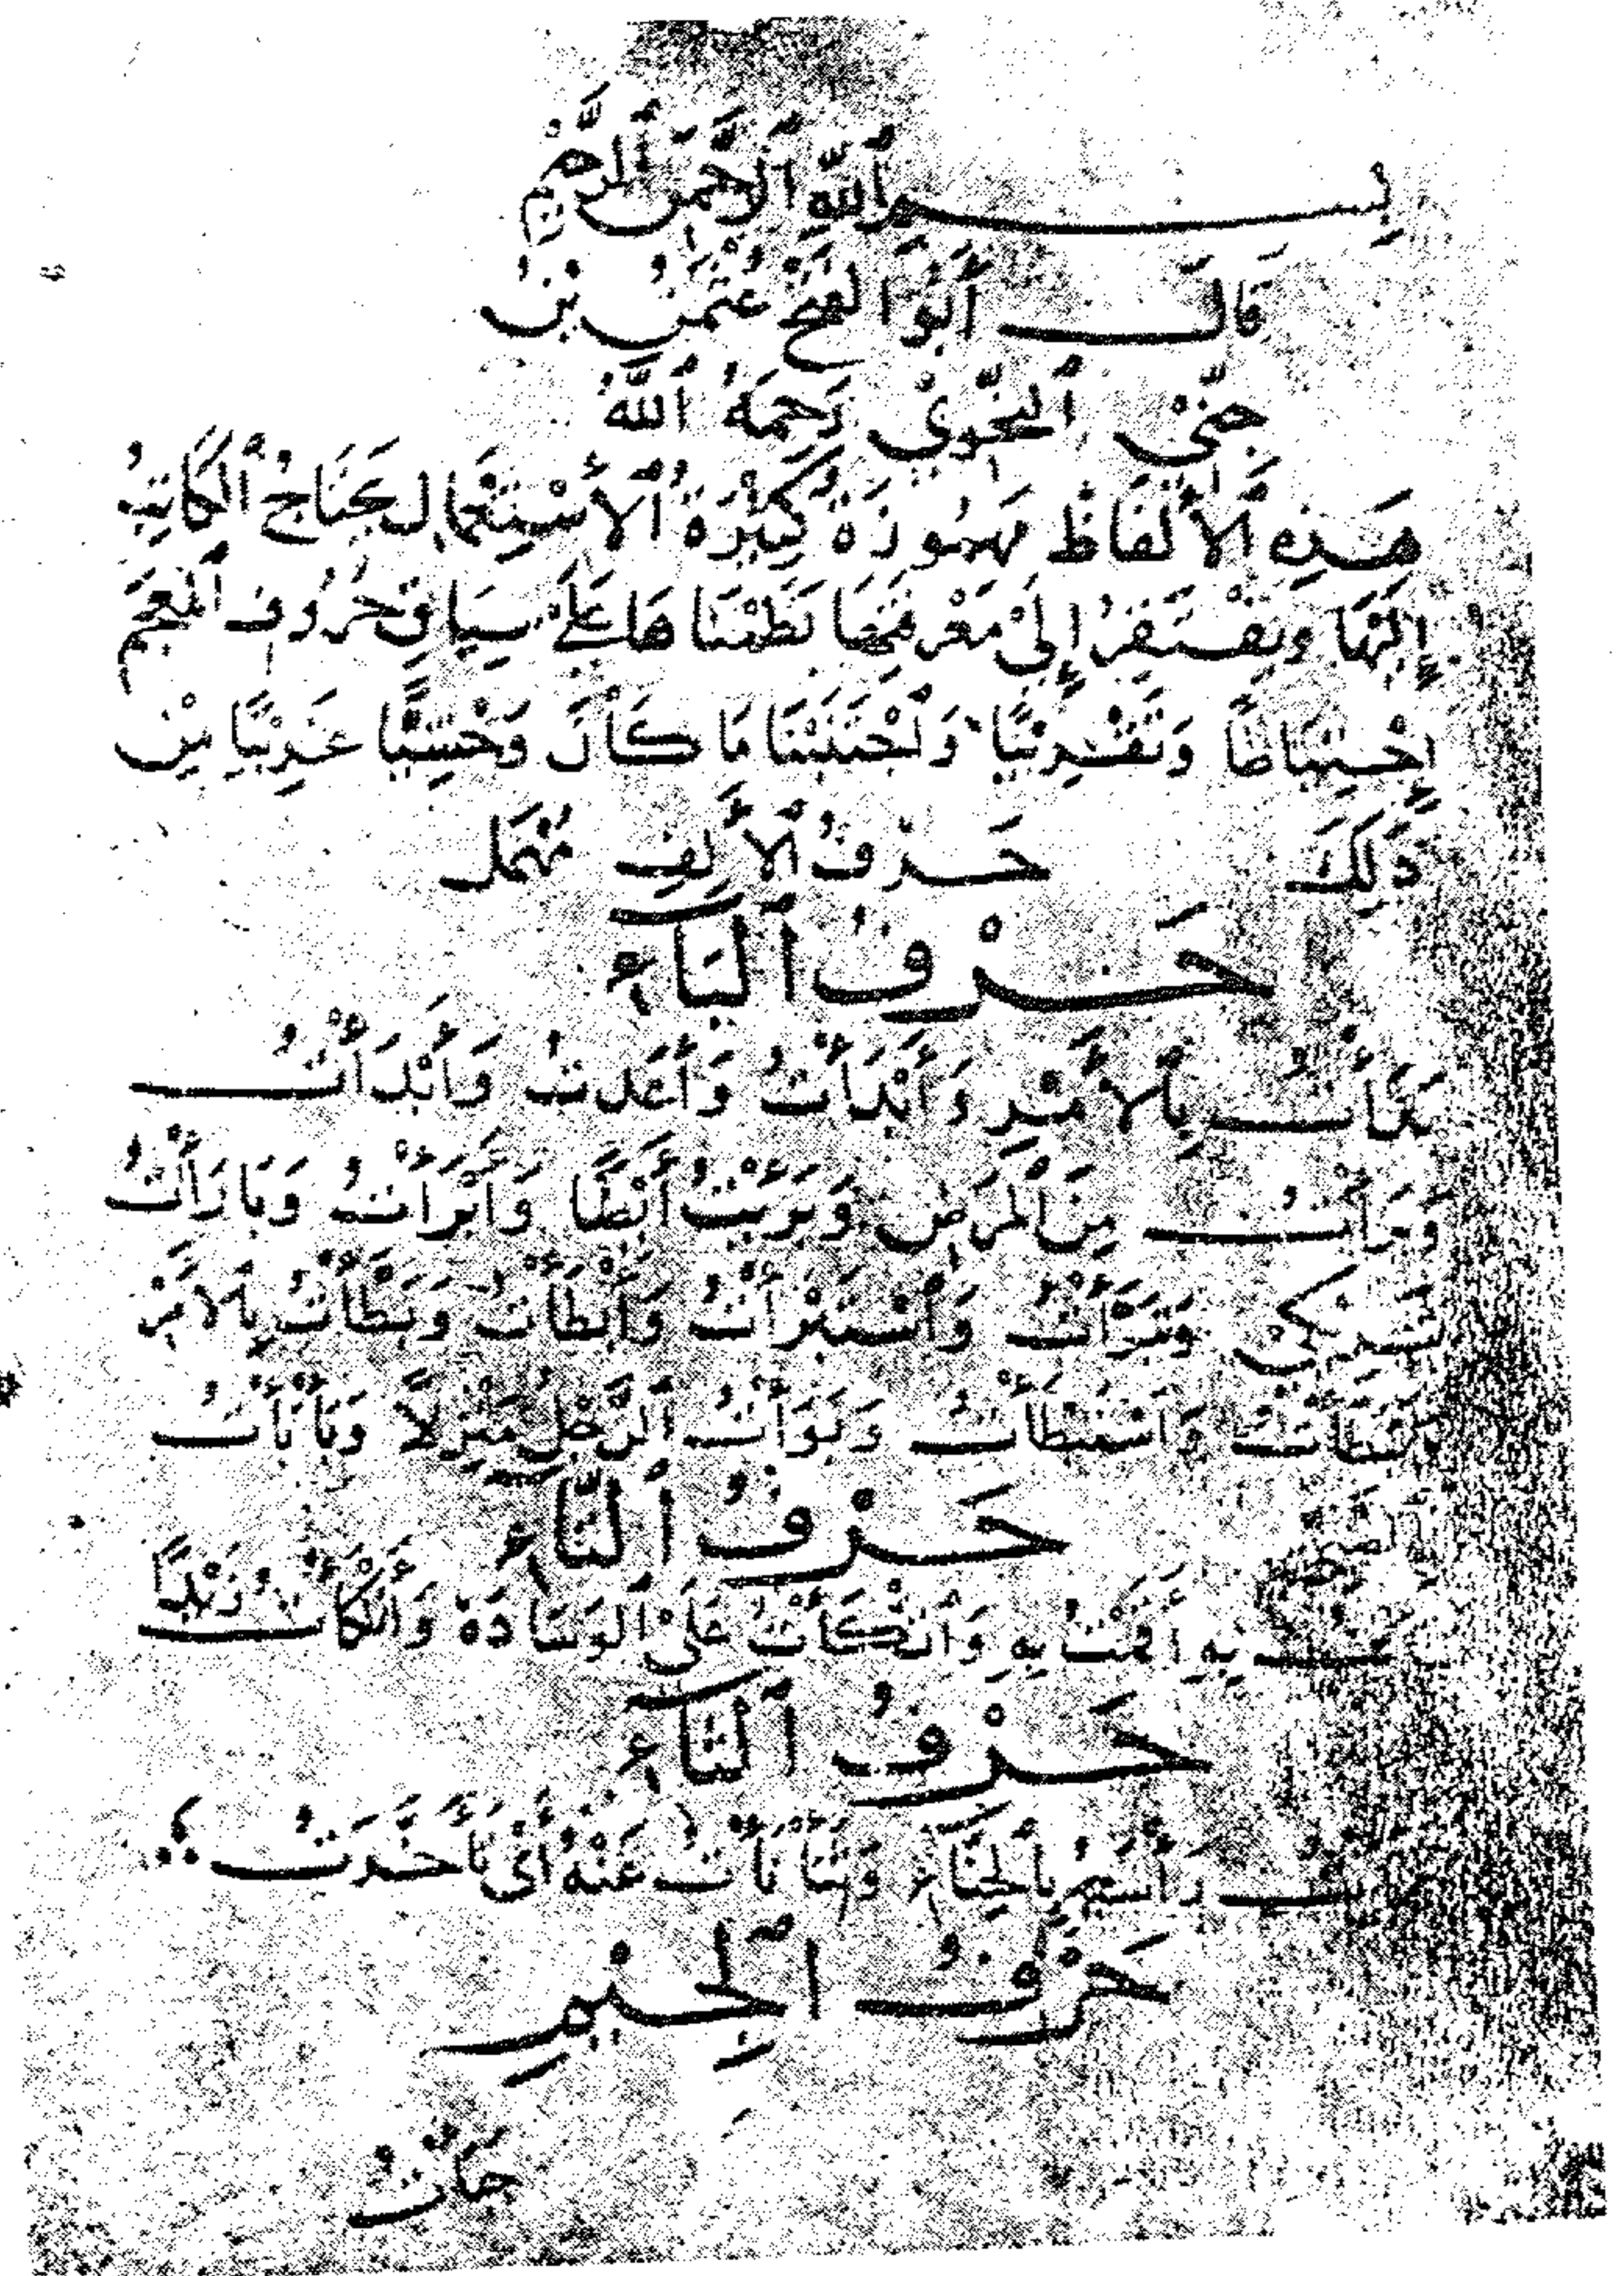 بِســـمِ ٱللَّهِ ٱلرَّحْمٰنِ ٱلرَّحِيْمِ
قَالَ أَبُو ٱلْفَتْحِ عُثْمٰنُ بْنُ
جِنِّيْ ٱلنَّحْوِيْ رَحِمَهُ ٱللَّهُ
هَذِهِ ٱلأَلْفَاظُ مَهْمُوزَةٌ كَثِيْرَةُ ٱلأسْتِعْمَالِ يَحْتَاجُ ٱلْكَاتِبُ
إِلَيْهَا وَيَفْتَقِرُ إِلَىْ مَعْرِفَتِهَا نَظَمْنَاهَا عَلَىْ سِيَاقِ حُرُوفِ ٱلْمُعْجَمِ
إِحْتِيَاطًا وَتَقْرِيْبًا وَٱجْتَنَبْنَا مَا كَانَ وَحْشِيًّا غَرِيْبًا مِنْ
ذَلِكَ حَرْفُ ٱلأَلِفِ مُهْمَل
حَرْفُ ٱلْبَآءِ
بَدَأْتُ بِٱلأَمْرِ وَأَبْدَأْتُ وَأَعَدْتُ وَٱبْتَدَأْتُ
وَبَرَأْتُ مِنَ ٱلْمَرَضِ وَبَرِئْتُ أَيْضًا وَأَبْرَأْتُ وَبَارَأْتُ
شَرِيْكِيْ وَتَبَرَّأْتُ وَٱسْتَبْرَأْتُ وَأَبْطَأْتُ وَبَطَّأْتُ بِٱلأَمْرِ
وَٱسْتَبْطَأْتُ وَبَوَّأْتُ ٱلرَّجُلَ مَنْزِلاً وَبَأْبَأْتُ
ٱلصَّبِيَّ حَرْفُ ٱلتَّآءِ
بِهِ أَقَمْتُ بِهِ وَٱتَّكَأْتُ عَلَىْ ٱلْوِسَادَةِ وَأَتْكَأْتُ زَيْدًا
حَرْفُ ٱلثَّآءِ
رَأْسَهُ بِٱلْحِنَّآءِ وَثَأْثَأْتُ عَنْهُ أَيْ تَأَخَّرْتُ
حَرْفُ ٱلْجِيْمِ